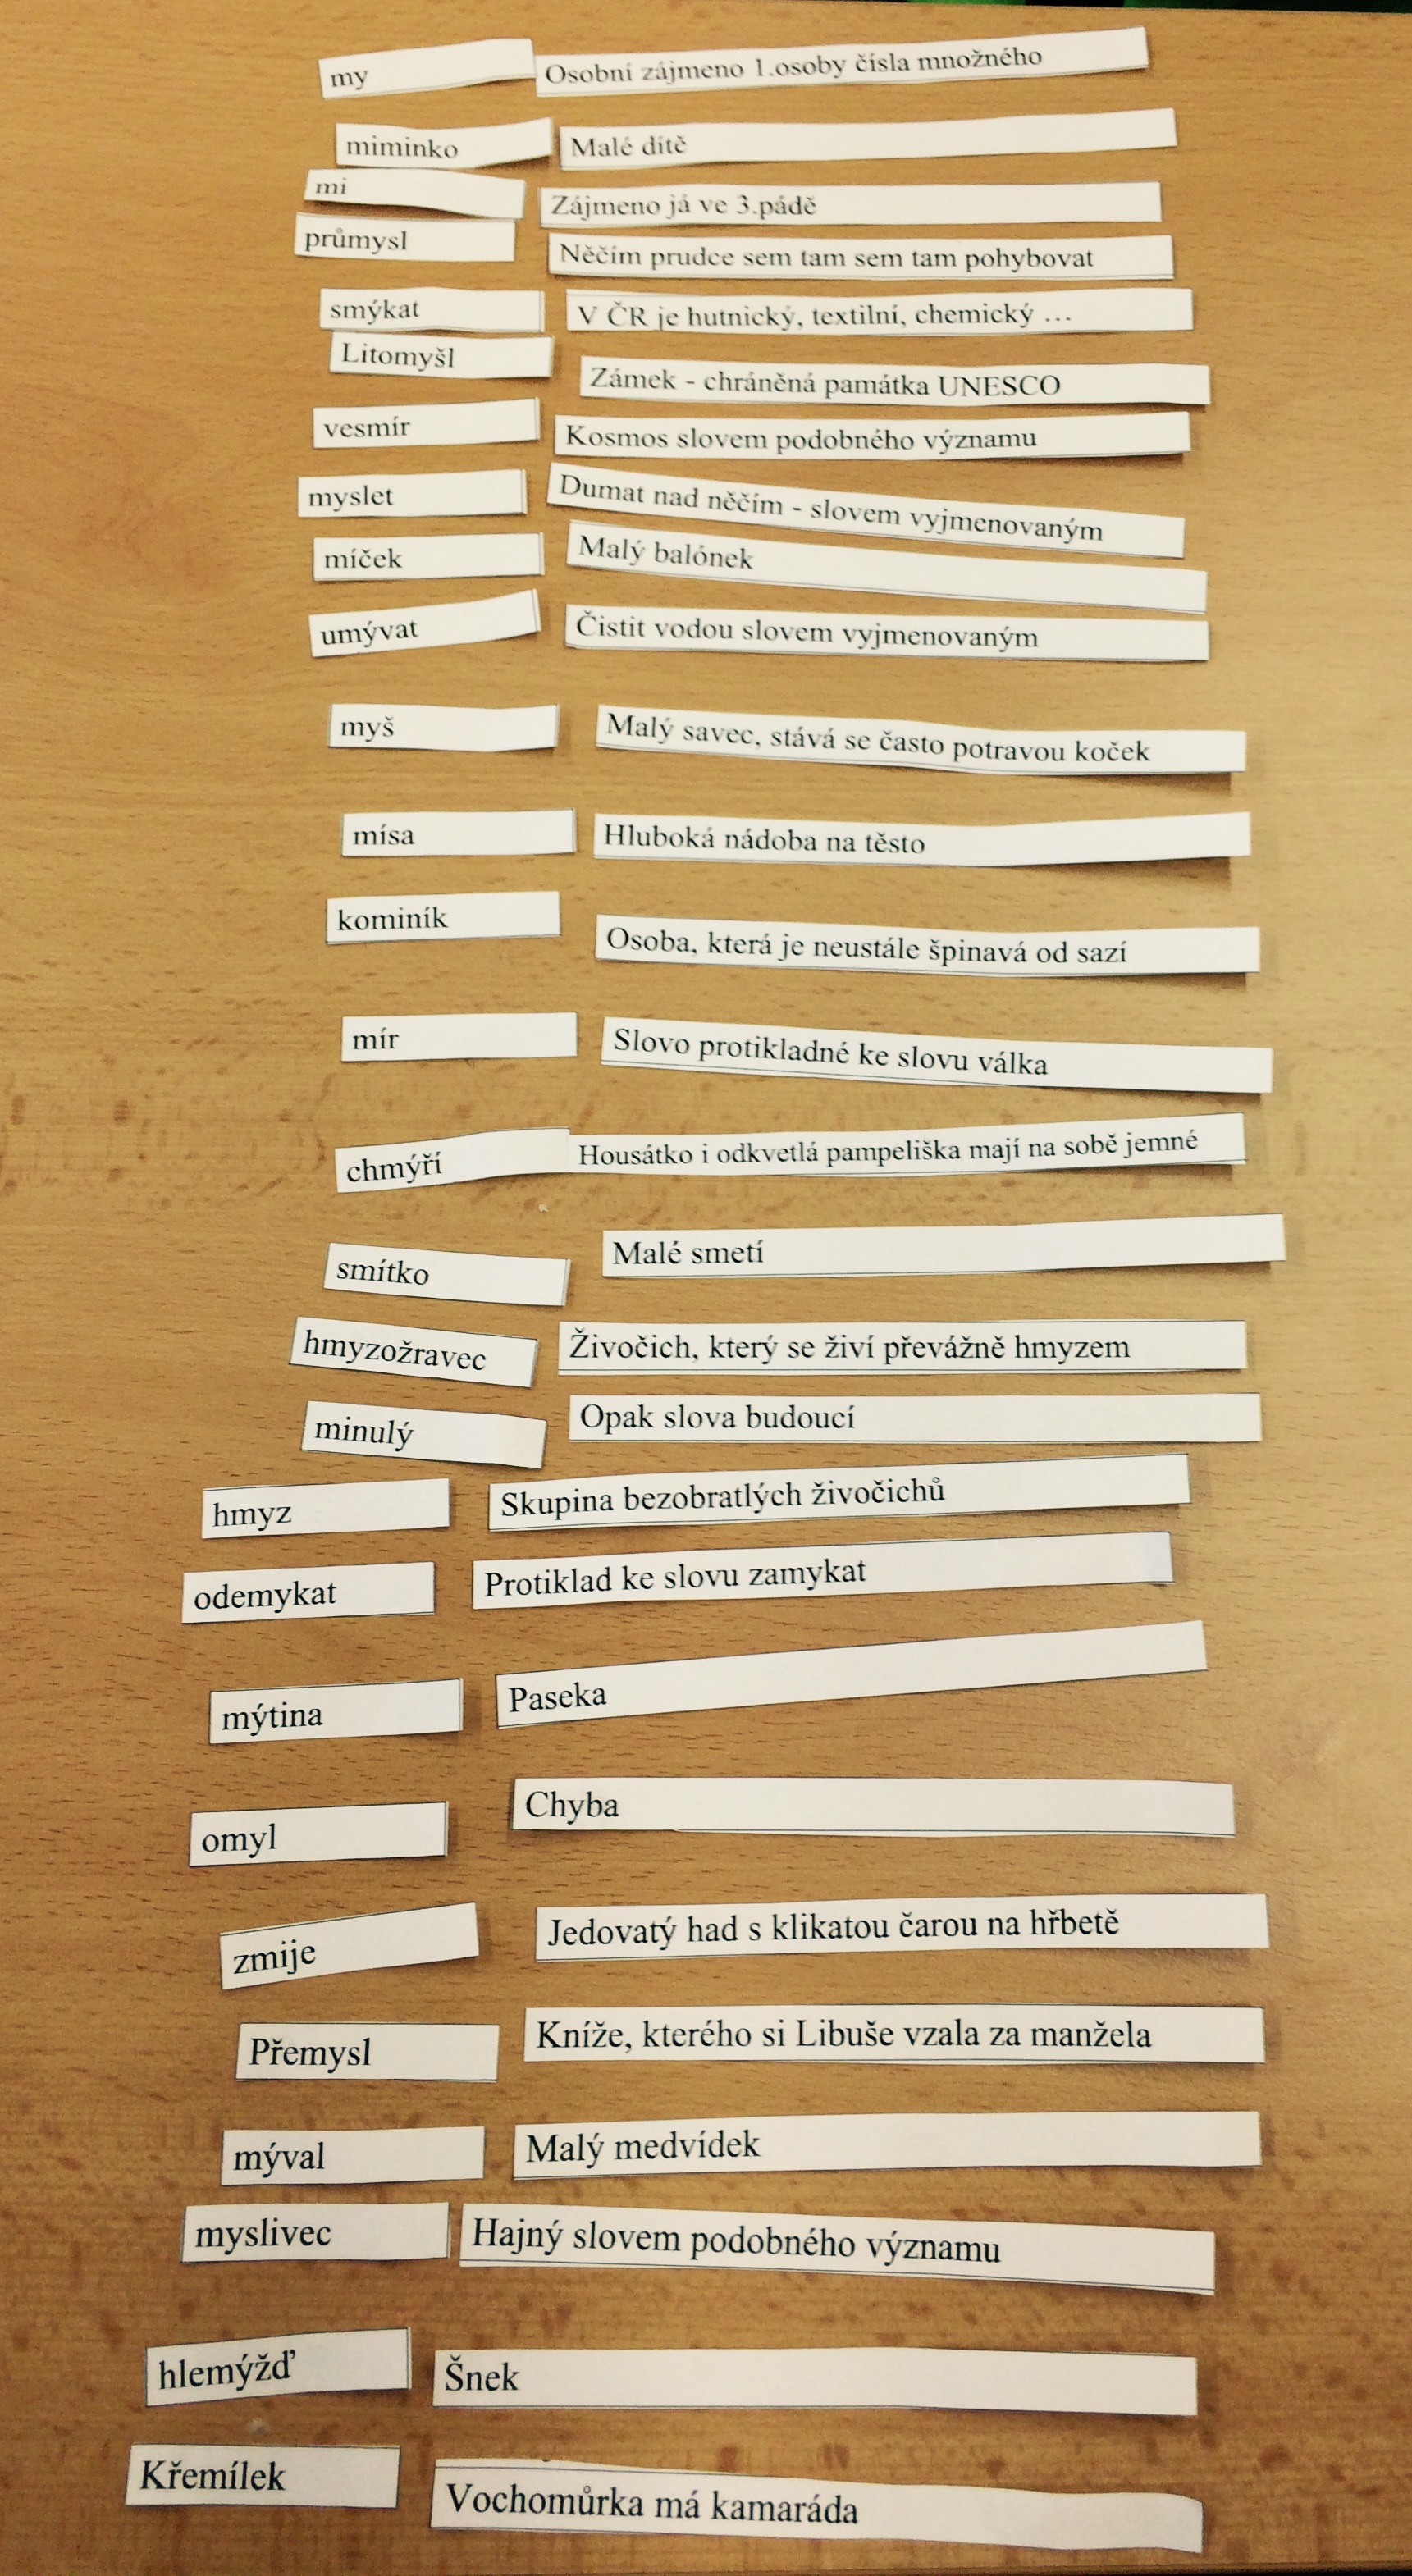 my Osobní zájmeno 1.osoby čísla množného
miminko Malé dítě
mi Zájmeno já ve 3.pádě
průmysl Něčím prudce sem tam sem tam pohybovat
smýkat V ČR je hutnický, textilní, chemický …
Litomyšl Zámek - chráněná památka UNESCO
vesmír Kosmos slovem podobného významu
myslet Dumat nad něčím - slovem vyjmenovaným
míček Malý balónek
umývat Čistit vodou slovem vyjmenovaným
myš Malý savec, stává se často potravou koček
mísa Hluboká nádoba na těsto
kominík Osoba, která je neustále špinavá od sazí
mír Slovo protikladné ke slovu válka
chmýří Housátko i odkvetlá pampeliška mají na sobě jemné
smítko Malé smetí
hmyzožravec Živočich, který se živí převážně hmyzem
minulý Opak slova budoucí
hmyz Skupina bezobratlých živočichů
odemykat Protiklad ke slovu zamykat
mýtina Paseka
omyl Chyba
zmije Jedovatý had s klikatou čarou na hřbetě
Přemysl Kníže, kterého si Libuše vzala za manžela
mýval Malý medvídek
myslivec Hajný slovem podobného významu
hlemýžď Šnek
Křemílek Vochomůrka má kamaráda